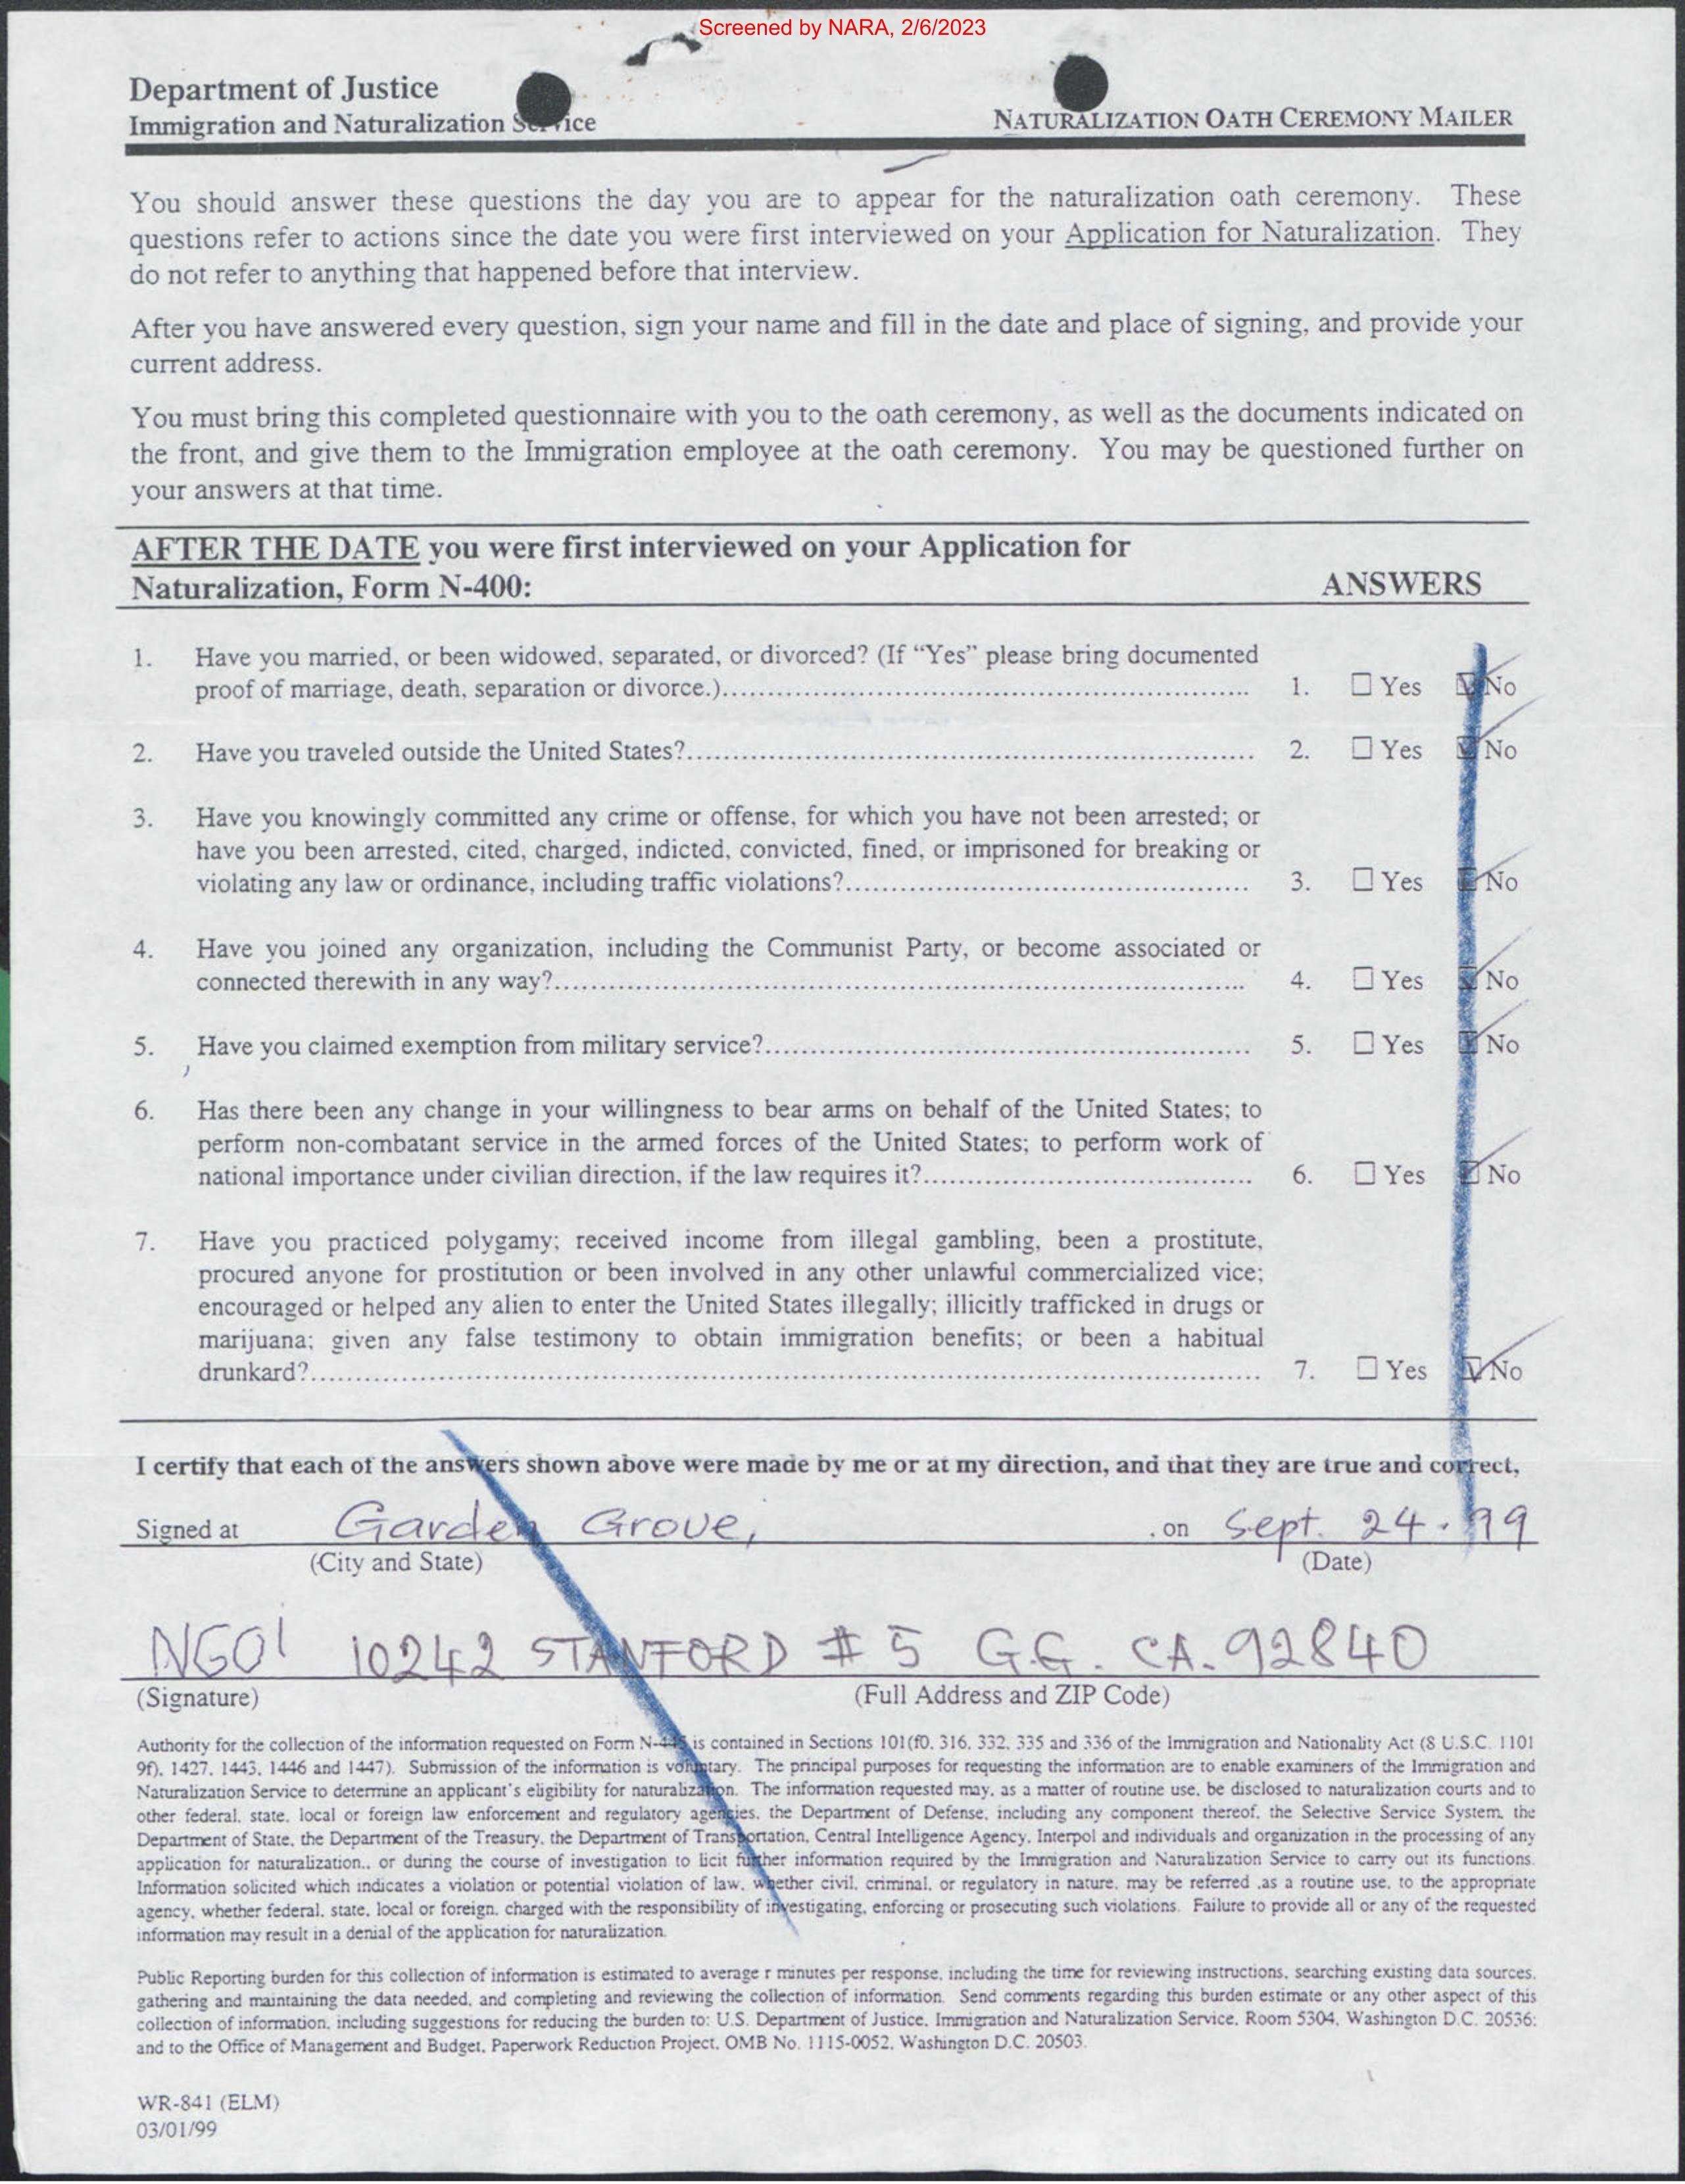 Screened by NARA, 2/6/2023
Department of Justice
Immigration and Naturalization Service
NATURALIZATION OATH CEREMONY MAILER
You should answer these questions the day you are to appear for the naturalization oath ceremony. These
questions refer to actions since the date you were first interviewed on your Application for Naturalization. They
do not refer to anything that happened before that interview.
After you have answered every question, sign your name and fill in the date and place of signing, and provide your
current address.
You must bring this completed questionnaire with you to the oath ceremony, as well as the documents indicated on
the front, and give them to the Immigration employee at the oath ceremony. You may be questioned further on
your answers at that time.
AFTER THE DATE you were first interviewed on your Application for
Naturalization, Form N-400: ANSWERS
1. Have you married, or been widowed, separated, or divorced? (If “Yes” please bring documented
proof of marriage, death, separation or divorce.)... 1. ☐ Yes ☑ No
2. Have you traveled outside the United States?... 2. ☐ Yes ☑ No
3. Have you knowingly committed any crime or offense, for which you have not been arrested; or
have you been arrested, cited, charged, indicted, convicted, fined, or imprisoned for breaking or
violating any law or ordinance, including traffic violations?... 3. ☐ Yes ☑ No
4. Have you joined any organization, including the Communist Party, or become associated or
connected therewith in any way?... 4. ☐ Yes ☑ No
5. Have you claimed exemption from military service?... 5. ☐ Yes ☑ No
6. Has there been any change in your willingness to bear arms on behalf of the United States; to
perform non-combatant service in the armed forces of the United States; to perform work of
national importance under civilian direction, if the law requires it?... 6. ☐ Yes ☑ No
7. Have you practiced polygamy; received income from illegal gambling, been a prostitute,
procured anyone for prostitution or been involved in any other unlawful commercialized vice;
encouraged or helped any alien to enter the United States illegally; illicitly trafficked in drugs or
marijuana; given any false testimony to obtain immigration benefits; or been a habitual
drunkard?... 7. ☐ Yes ☑ No
I certify that each of the answers shown above were made by me or at my direction, and that they are true and correct,
Signed at Garden Grove, , on Sept. 24 - 99
(City and State) (Date)
NGOI 10242 STANFORD # 5 G.G. CA. 92840
(Signature) (Full Address and ZIP Code)
Authority for the collection of the information requested on Form N-445 is contained in Sections 101(f0, 316, 332, 335 and 336 of the Immigration and Nationality Act (8 U.S.C. 1101
9f), 1427, 1443, 1446 and 1447). Submission of the information is voluntary. The principal purposes for requesting the information are to enable examiners of the Immigration and
Naturalization Service to determine an applicant's eligibility for naturalization. The information requested may, as a matter of routine use, be disclosed to naturalization courts and to
other federal, state, local or foreign law enforcement and regulatory agencies, the Department of Defense, including any component thereof, the Selective Service System, the
Department of State, the Department of the Treasury, the Department of Transportation, Central Intelligence Agency, Interpol and individuals and organization in the processing of any
application for naturalization., or during the course of investigation to licit further information required by the Immigration and Naturalization Service to carry out its functions.
Information solicited which indicates a violation or potential violation of law, whether civil, criminal, or regulatory in nature, may be referred ,as a routine use, to the appropriate
agency, whether federal, state, local or foreign, charged with the responsibility of investigating, enforcing or prosecuting such violations. Failure to provide all or any of the requested
information may result in a denial of the application for naturalization.
Public Reporting burden for this collection of information is estimated to average r minutes per response, including the time for reviewing instructions, searching existing data sources,
gathering and maintaining the data needed, and completing and reviewing the collection of information. Send comments regarding this burden estimate or any other aspect of this
collection of information, including suggestions for reducing the burden to: U.S. Department of Justice, Immigration and Naturalization Service, Room 5304, Washington D.C. 20536;
and to the Office of Management and Budget, Paperwork Reduction Project, OMB No. 1115-0052, Washington D.C. 20503.
WR-841 (ELM)
03/01/99